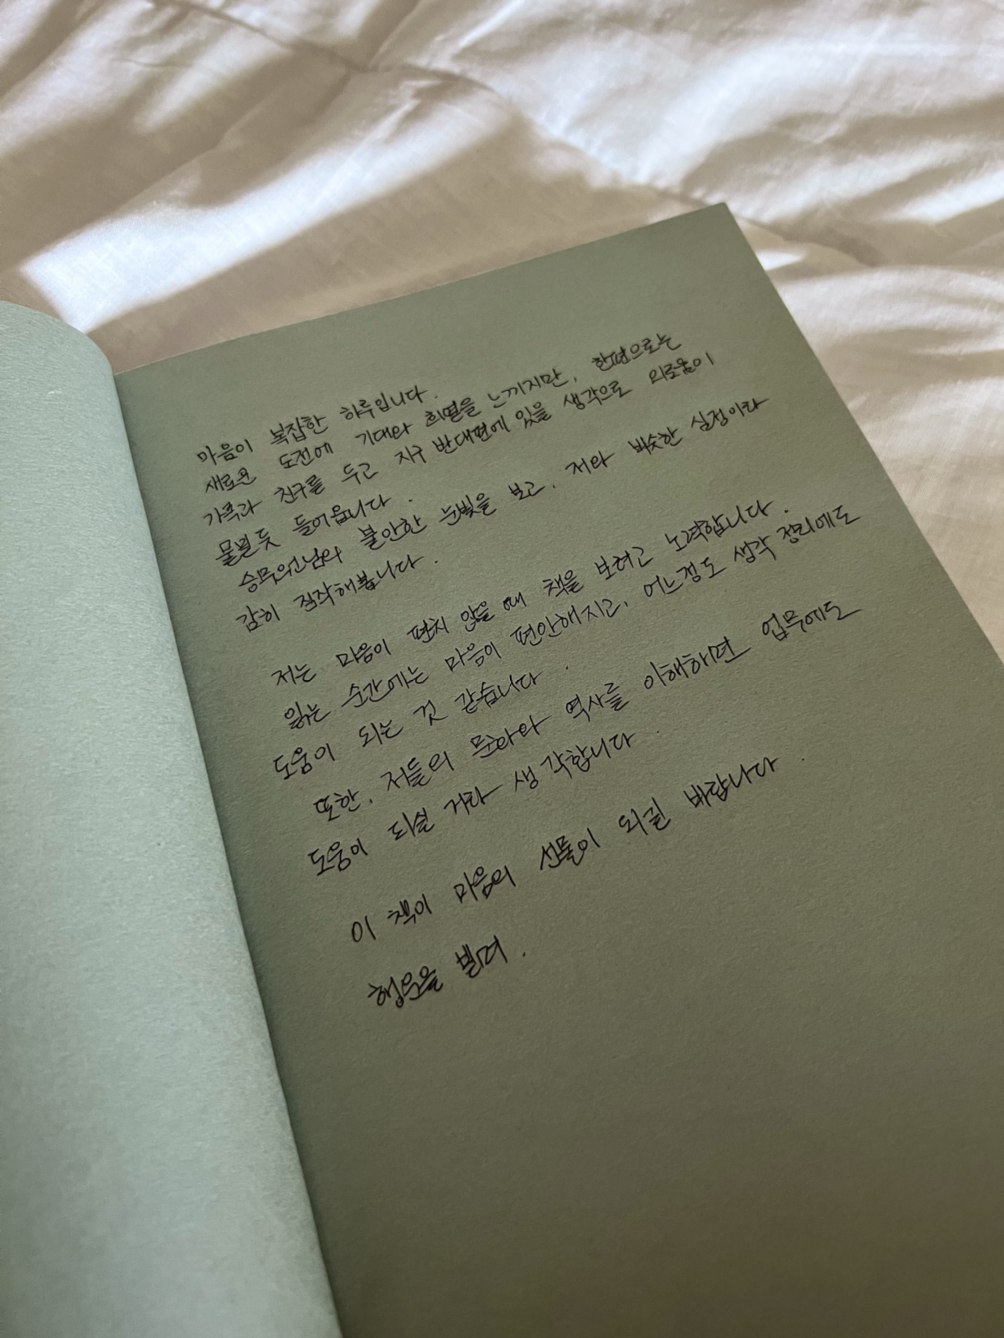 마음이 복잡한 하루입니다.
새로운 도전에 기대와 희열을 느끼지만, 한편으로는
가족과 친구를 두고 지구 반대편에 있을 생각으로 외로움이
물밀듯 들어옵니다.
승무원님의 불안한 눈빛을 보고, 저와 비슷한 심정이라
감히 짐작해봅니다.
저는 마음이 편치 않을 때 책을 보려고 노력합니다.
읽는 순간에는 마음이 편안해지고, 어느정도 생각 정리에도
도움이 되는 것 같습니다.
또한, 저들의 문화와 역사를 이해하면 업무에도
도움이 되실 거라 생각합니다.
이 책이 마음의 선물이 되길 바랍니다.
행운을 빌며.